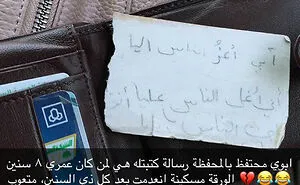 أبي أعز الناس إليا
أبي أغلى الناس علما
الناس
ابوي محتفظ بالمحفظة رسالة كتبتله هي لمن كان عمري ٨ سنين
😂😂💔 الورقة مسكينة انعدمت بعد كل ذي السنين، متعوب